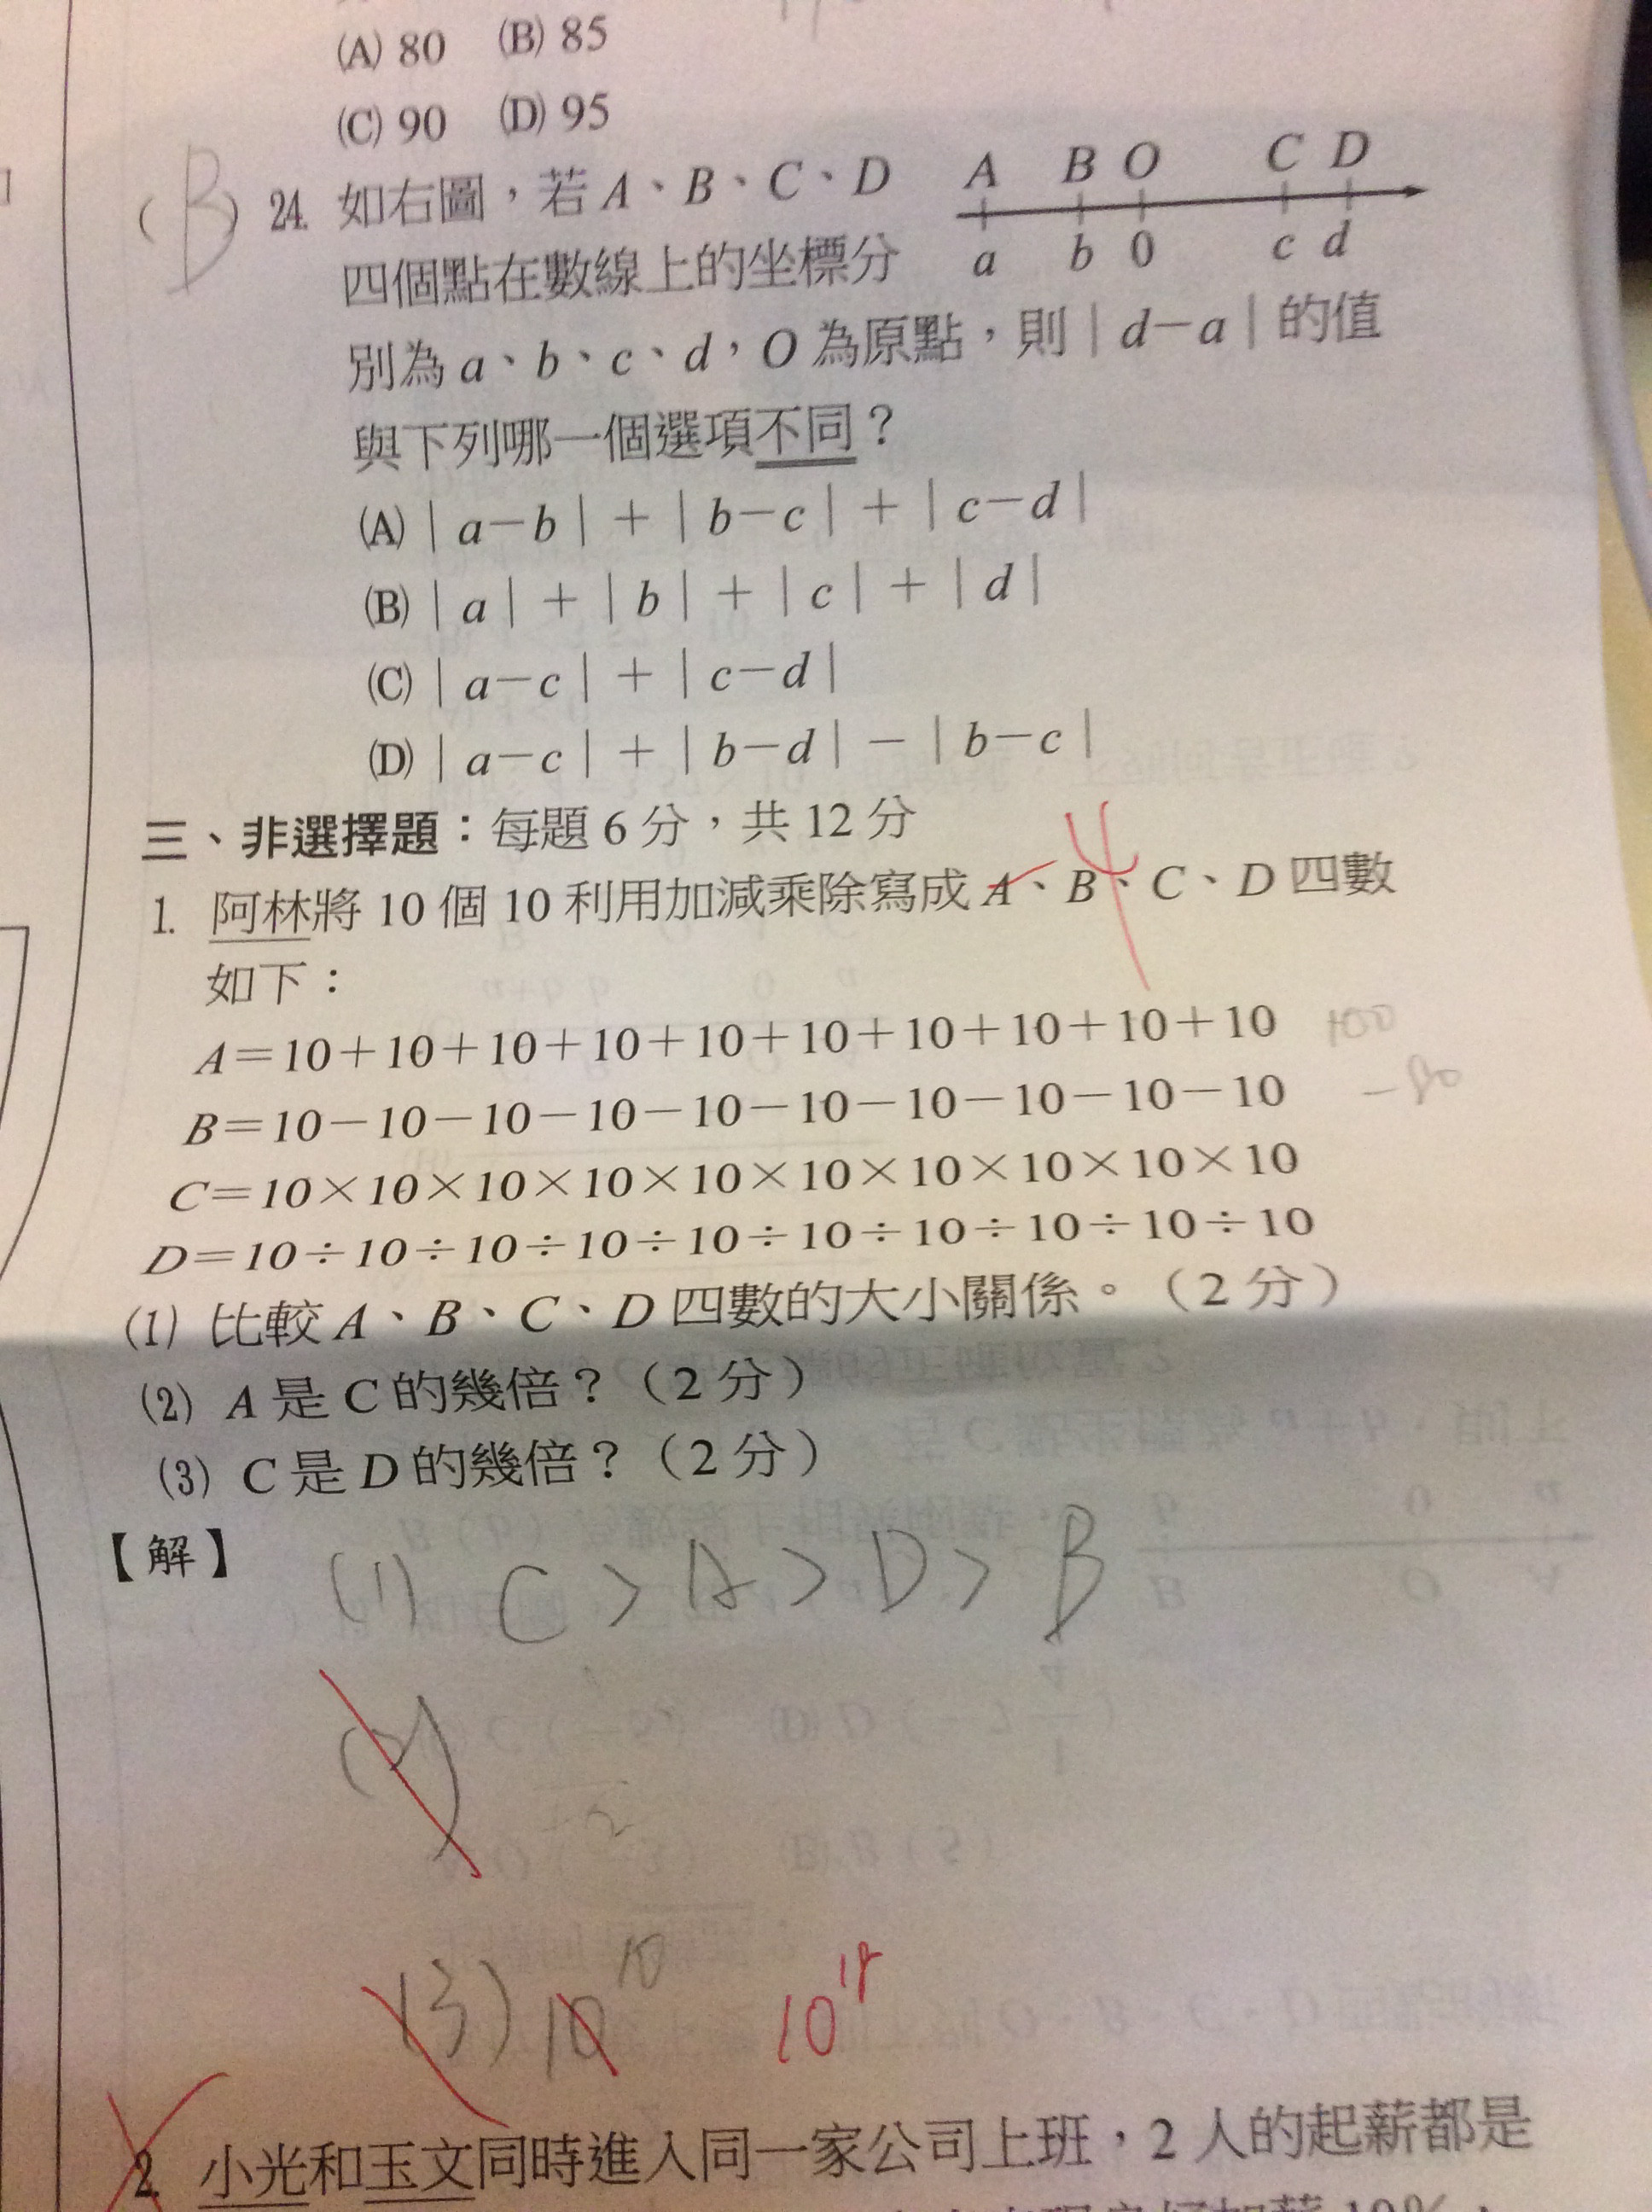 (A) 80 (B) 85
(C) 90 (D) 95
(B) 24. 如右圖，若 A、B、C、D
A B O C D
a b 0 c d
四個點在數線上的坐標分
別為 a、b、c、d，O 為原點，則｜d－a｜的值
與下列哪一個選項不同？
(A)｜a－b｜＋｜b－c｜＋｜c－d｜
(B)｜a｜＋｜b｜＋｜c｜＋｜d｜
(C)｜a－c｜＋｜c－d｜
(D)｜a－c｜＋｜b－d｜－｜b－c｜
三、非選擇題：每題 6 分，共 12 分
1. 阿林將 10 個 10 利用加減乘除寫成 A、B、C、D 四數
如下：
A＝10＋10＋10＋10＋10＋10＋10＋10＋10＋10 100
B＝10－10－10－10－10－10－10－10－10－10 －80
C＝10×10×10×10×10×10×10×10×10×10
D＝10÷10÷10÷10÷10÷10÷10÷10÷10÷10
(1) 比較 A、B、C、D 四數的大小關係。（2 分）
(2) A 是 C 的幾倍？（2 分）
(3) C 是 D 的幾倍？（2 分）
【解】
(1) C > A > D > B
(2)
(3) 10^10 10^18
2. 小光和玉文同時進入同一家公司上班，2 人的起薪都是